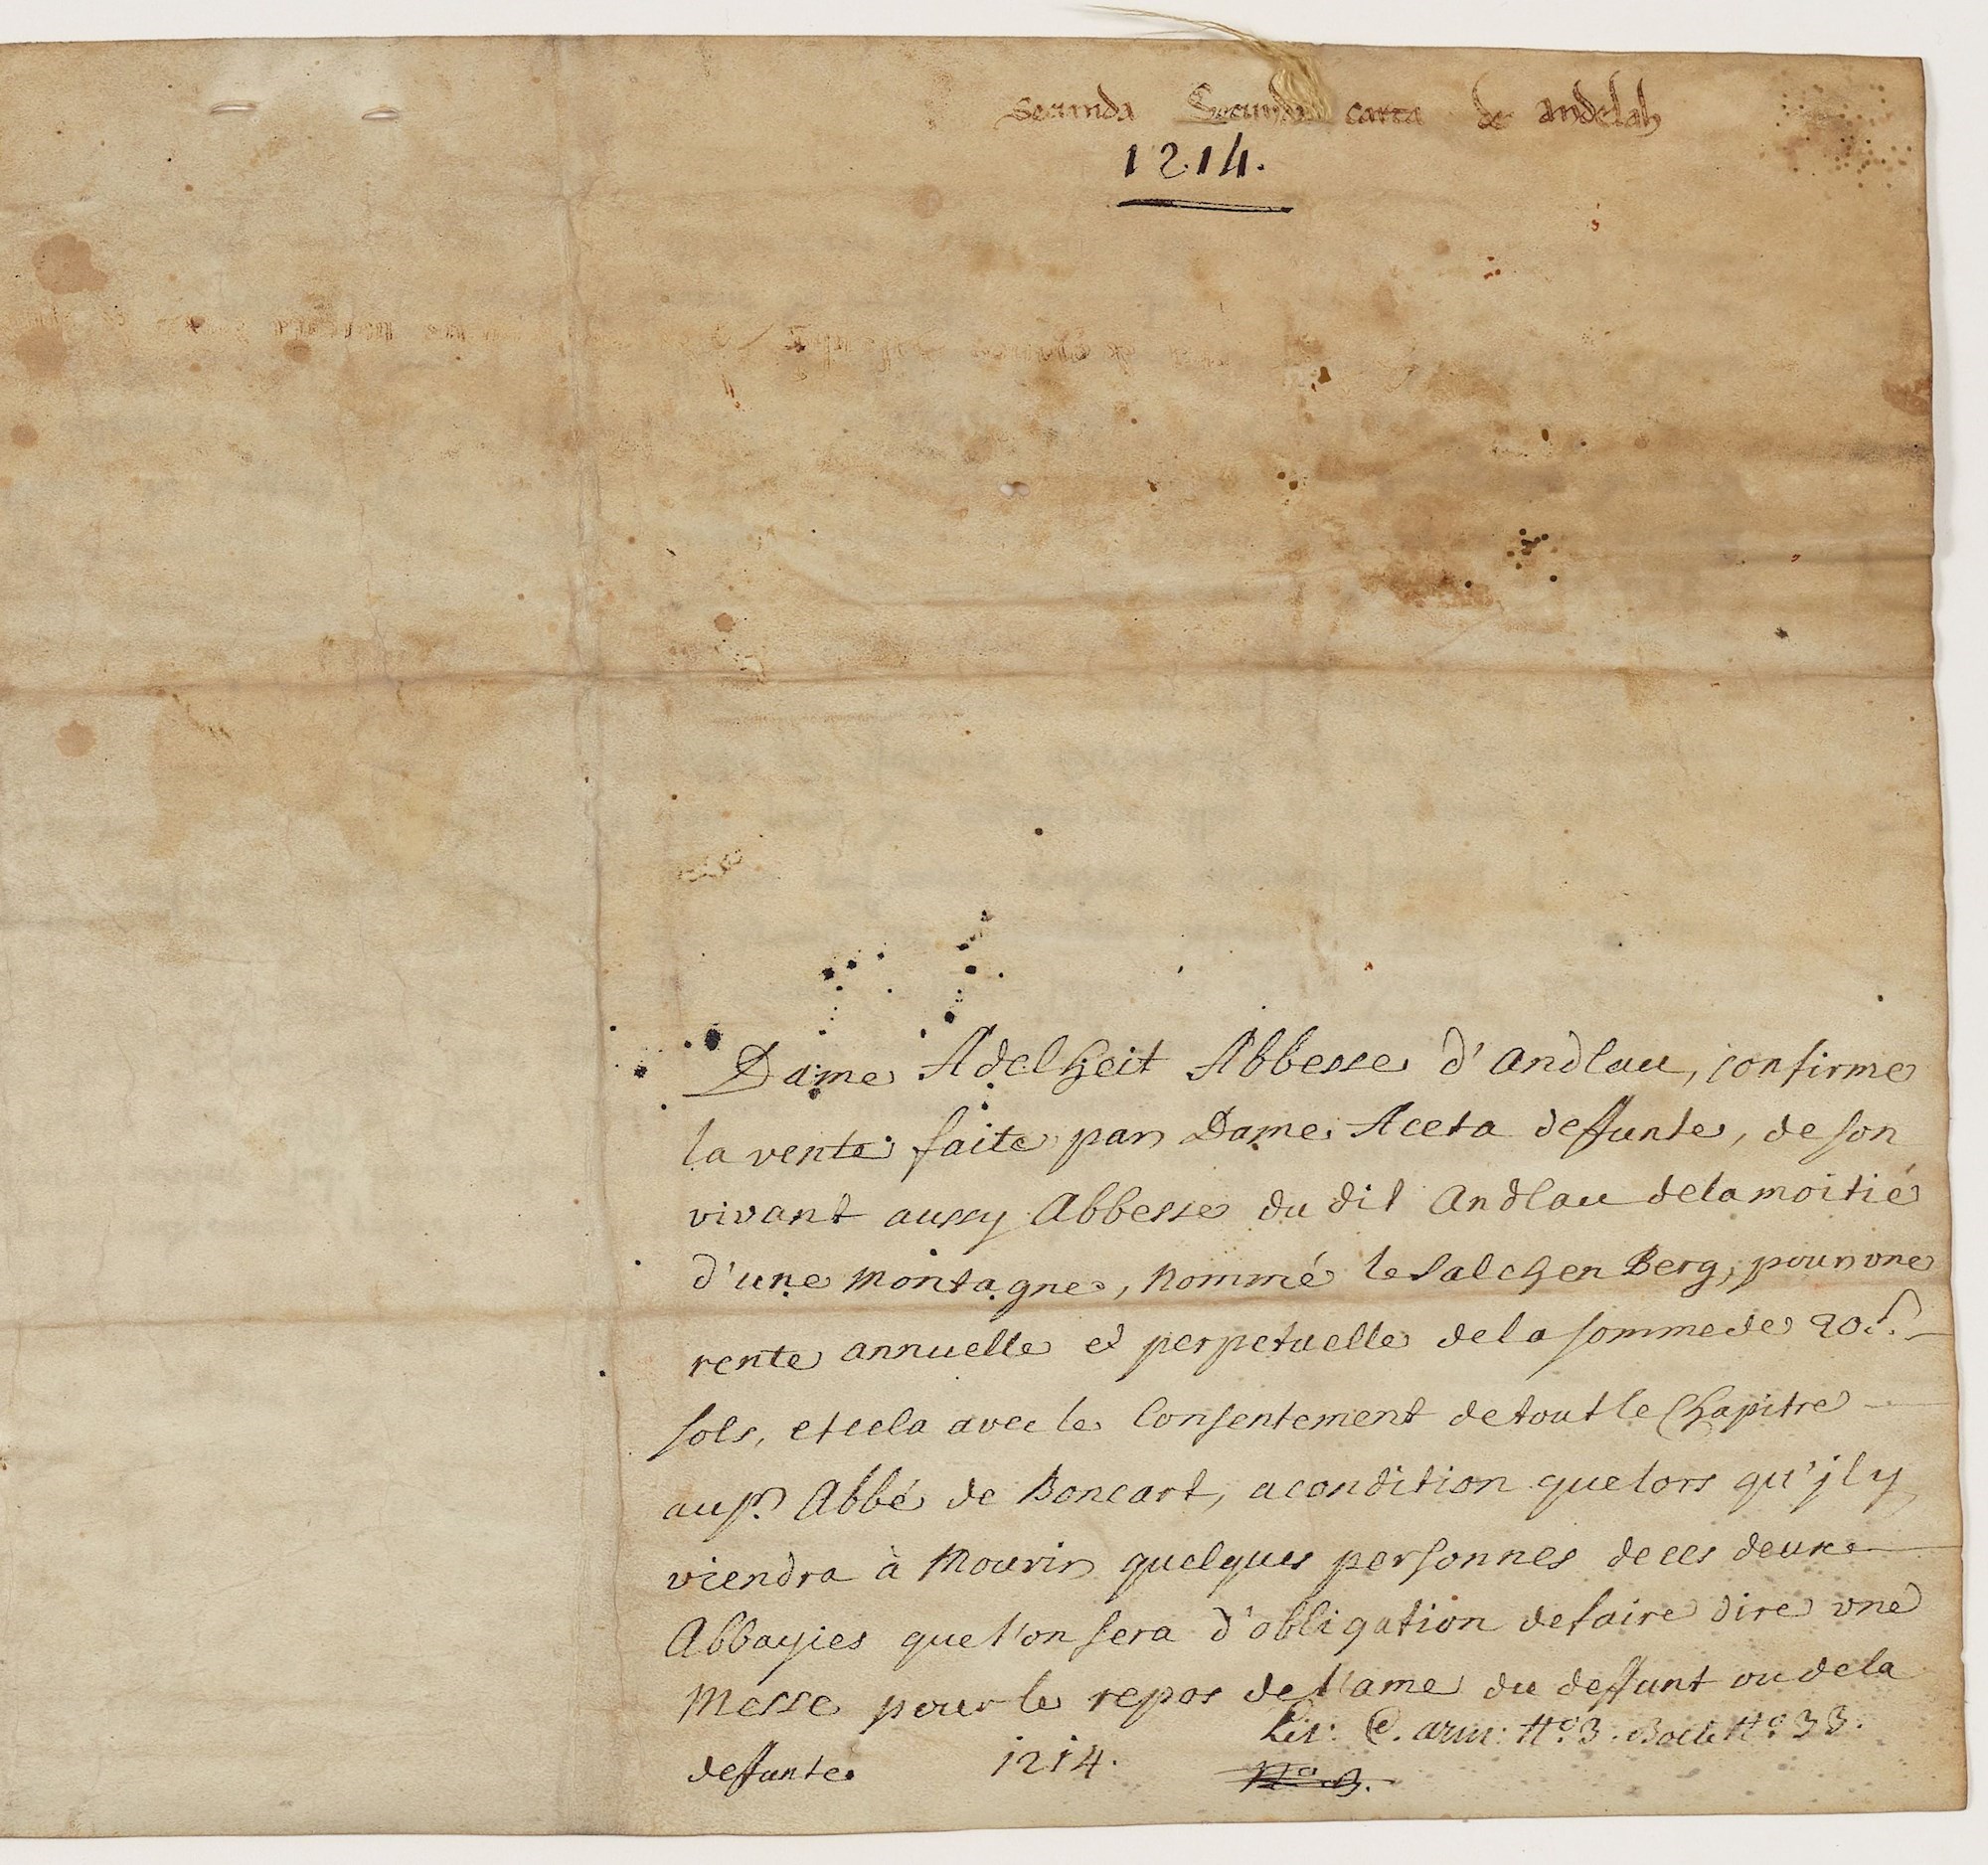 Secunda Secunda carta de andelah
1214.
Dame Adelheit Abbesse d'Andlau, confirme
la vente faite par Dame Aceta deffunte, de son
vivant aussy Abbesse du dit Andlau dela moitié
d'une Montagne, Nommé le Salchen Berg, pour vne
rente annuelle et perpetuelle dela somme de 20 s.
sols, et cela avec le Consentement de tout le Chapitre
au sr. Abbé de Boncart, a condition que lors qu'jl y
viendra à Mourir quelques personnes de ces deux
Abbayies que l'on sera d'obligation de faire dire vne
Messe pour le repos de l'ame du deffunt ou dela
deffunte. 1214.
Lit: C. arm: No. 3. Bock No. 33.